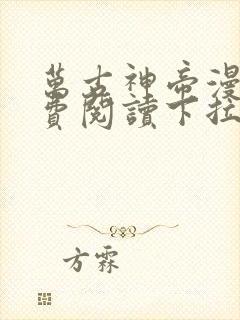 萬古神帝漫
費閱讀下拉
方霖